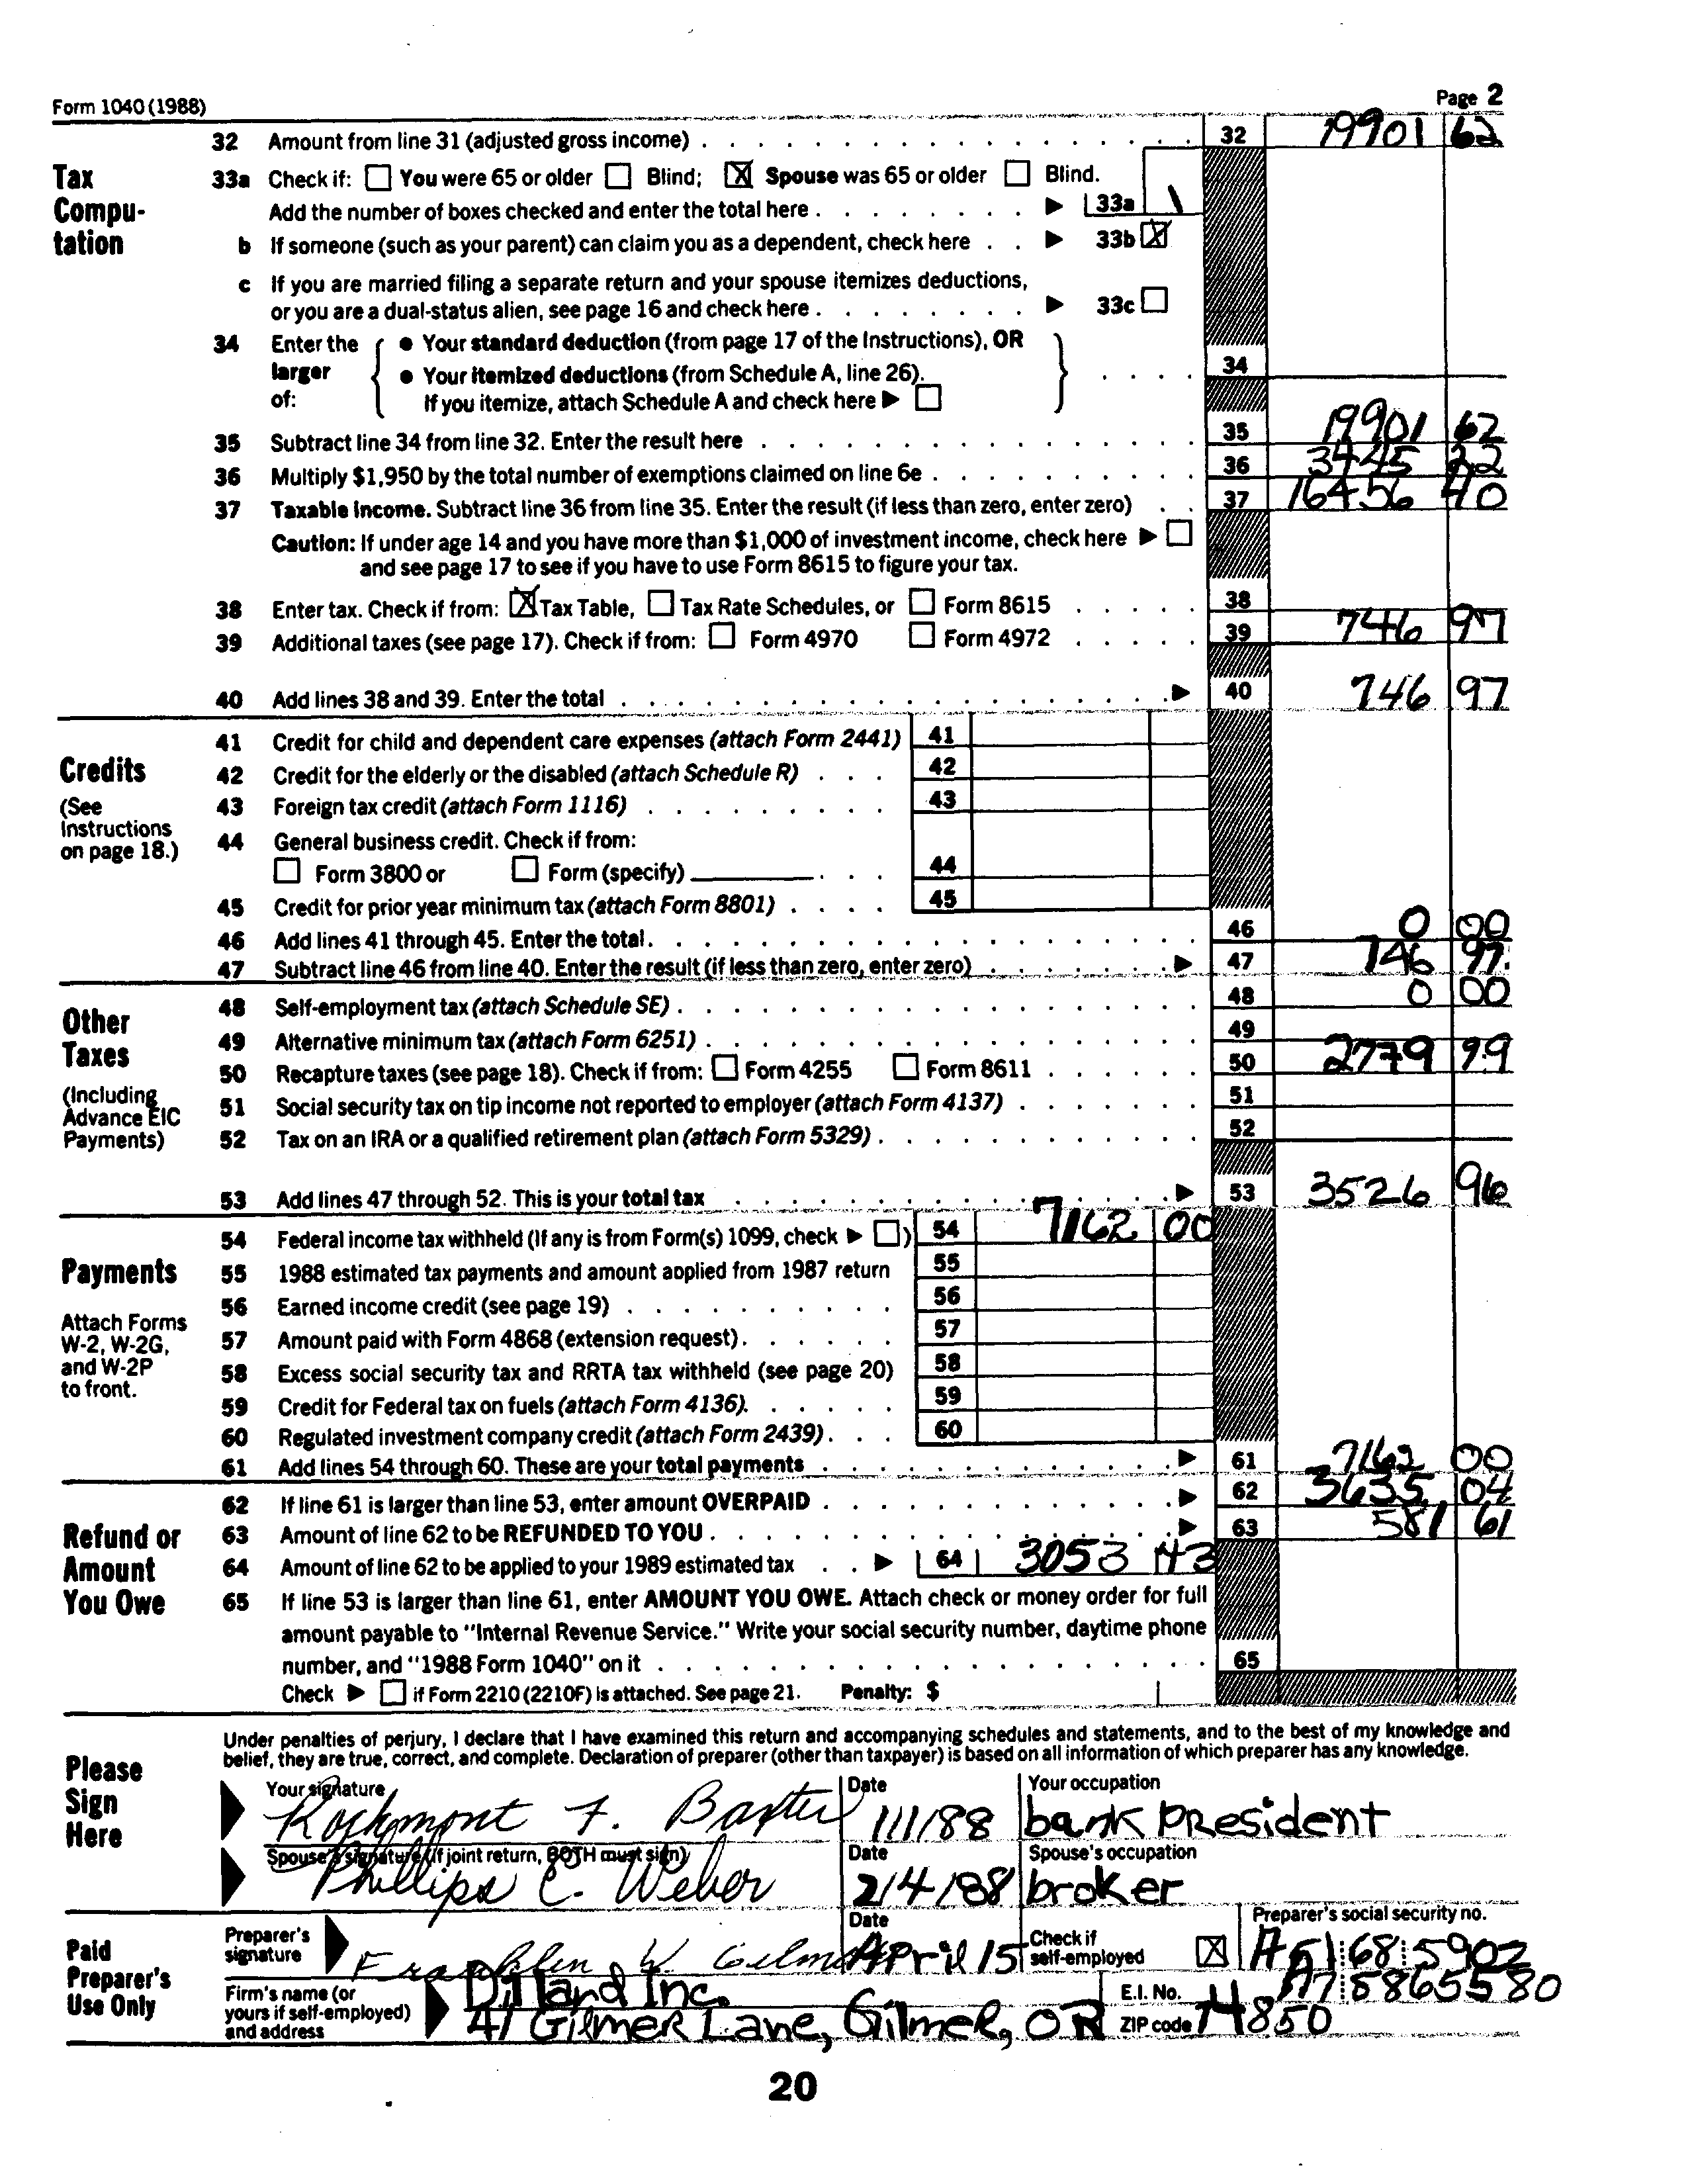 Form 1040 (1988) Page 2
32 Amount from line 31 (adjusted gross income) . . . 32 19901 62
Tax Compu-tation
33a Check if: You were 65 or older Blind; X Spouse was 65 or older Blind.
Add the number of boxes checked and enter the total here . . . 33a 1
b If someone (such as your parent) can claim you as a dependent, check here . . 33b X
c If you are married filing a separate return and your spouse itemizes deductions,
or you are a dual-status alien, see page 16 and check here . . . 33c
34 Enter the larger of:
• Your standard deduction (from page 17 of the Instructions), OR
• Your itemized deductions (from Schedule A, line 26).
If you itemize, attach Schedule A and check here
34
35 Subtract line 34 from line 32. Enter the result here . . . 35 19901 62
36 Multiply $1,950 by the total number of exemptions claimed on line 6e . . . 36 3445 22
37 Taxable income. Subtract line 36 from line 35. Enter the result (if less than zero, enter zero) . . 37 16456 40
Caution: If under age 14 and you have more than $1,000 of investment income, check here
and see page 17 to see if you have to use Form 8615 to figure your tax.
38 Enter tax. Check if from: X Tax Table, Tax Rate Schedules, or Form 8615 . . . 38
39 Additional taxes (see page 17). Check if from: Form 4970 Form 4972 . . . 39 746 97
40 Add lines 38 and 39. Enter the total . . . 40 746 97
Credits
(See Instructions on page 18.)
41 Credit for child and dependent care expenses (attach Form 2441) 41
42 Credit for the elderly or the disabled (attach Schedule R) . . . 42
43 Foreign tax credit (attach Form 1116) . . . 43
44 General business credit. Check if from:
Form 3800 or Form (specify) . . . 44
45 Credit for prior year minimum tax (attach Form 8801) . . . 45
46 Add lines 41 through 45. Enter the total . . . 46 0 00
47 Subtract line 46 from line 40. Enter the result (if less than zero, enter zero) . . . 47 746 97
Other Taxes
(Including Advance EIC Payments)
48 Self-employment tax (attach Schedule SE) . . . 48 0 00
49 Alternative minimum tax (attach Form 6251) . . . 49
50 Recapture taxes (see page 18). Check if from: Form 4255 Form 8611 . . . 50 2779 99
51 Social security tax on tip income not reported to employer (attach Form 4137) . . . 51
52 Tax on an IRA or a qualified retirement plan (attach Form 5329) . . . 52
53 Add lines 47 through 52. This is your total tax . . . 53 3526 96
Payments
Attach Forms W-2, W-2G, and W-2P to front.
54 Federal income tax withheld (If any is from Form(s) 1099, check ) 54 7162 00
55 1988 estimated tax payments and amount applied from 1987 return 55
56 Earned income credit (see page 19) . . . 56
57 Amount paid with Form 4868 (extension request) . . . 57
58 Excess social security tax and RRTA tax withheld (see page 20) 58
59 Credit for Federal tax on fuels (attach Form 4136) . . . 59
60 Regulated investment company credit (attach Form 2439) . . . 60
61 Add lines 54 through 60. These are your total payments . . . 61 7162 00
Refund or Amount You Owe
62 If line 61 is larger than line 53, enter amount OVERPAID . . . 62 3635 04
63 Amount of line 62 to be REFUNDED TO YOU . . . 63 581 61
64 Amount of line 62 to be applied to your 1989 estimated tax . . 64 3053 43
65 If line 53 is larger than line 61, enter AMOUNT YOU OWE. Attach check or money order for full
amount payable to "Internal Revenue Service." Write your social security number, daytime phone
number, and "1988 Form 1040" on it . . . 65
Check if Form 2210 (2210F) is attached. See page 21. Penalty: $
Please Sign Here
Under penalties of perjury, I declare that I have examined this return and accompanying schedules and statements, and to the best of my knowledge and
belief, they are true, correct, and complete. Declaration of preparer (other than taxpayer) is based on all information of which preparer has any knowledge.
Your signature Date Your occupation
Rockmont F. Baxter 1/1/88 bank president
Spouse's signature (if joint return, BOTH must sign) Date Spouse's occupation
Phillips C. Weber 2/4/88 broker
Paid Preparer's Use Only
Preparer's signature Franklin W. Date April 15 Check if self-employed X Preparer's social security no. A51 68 5902
Firm's name (or yours if self-employed) and address Dilland Inc. E.I. No. A75865580
41 Gilmer Lane, Gilmer, OR ZIP code 74850
20